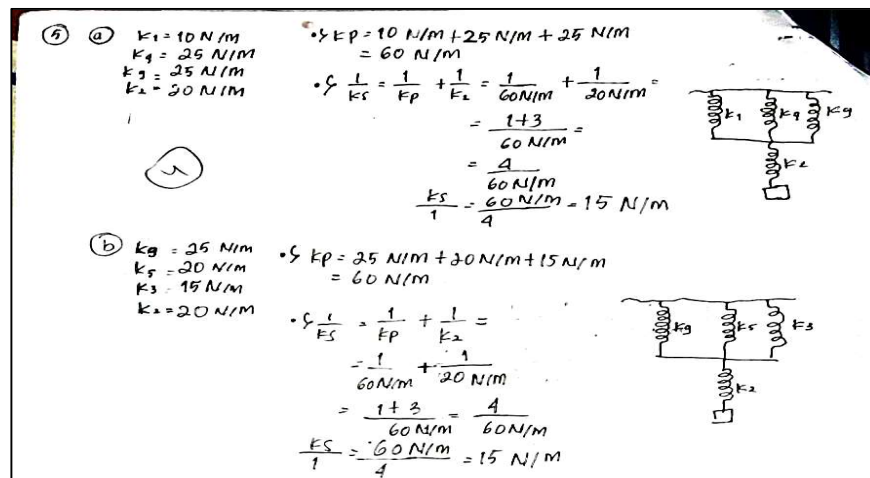 5 a k1 = 10 N/m
k4 = 25 N/m
k9 = 25 N/m
k2 = 20 N/m
•↳ kp = 10 N/m + 25 N/m + 25 N/m
= 60 N/m
•↳ 1/ks = 1/kp + 1/k2 = 1/60 N/m + 1/20 N/m =
= 1+3/60 N/m =
= 4/60 N/m
ks/1 = 60 N/m/4 = 15 N/m
k1 k9 k9
k2
b k9 = 25 N/m
k5 = 20 N/m
k3 = 15 N/m
k2 = 20 N/m
•↳ kp = 25 N/m + 20 N/m + 15 N/m
= 60 N/m
•↳ 1/ks = 1/kp + 1/k2 =
= 1/60 N/m + 1/20 N/m
= 1+3/60 N/m = 4/60 N/m
ks/1 = 60 N/m/4 = 15 N/m
k9 k5 k3
k2